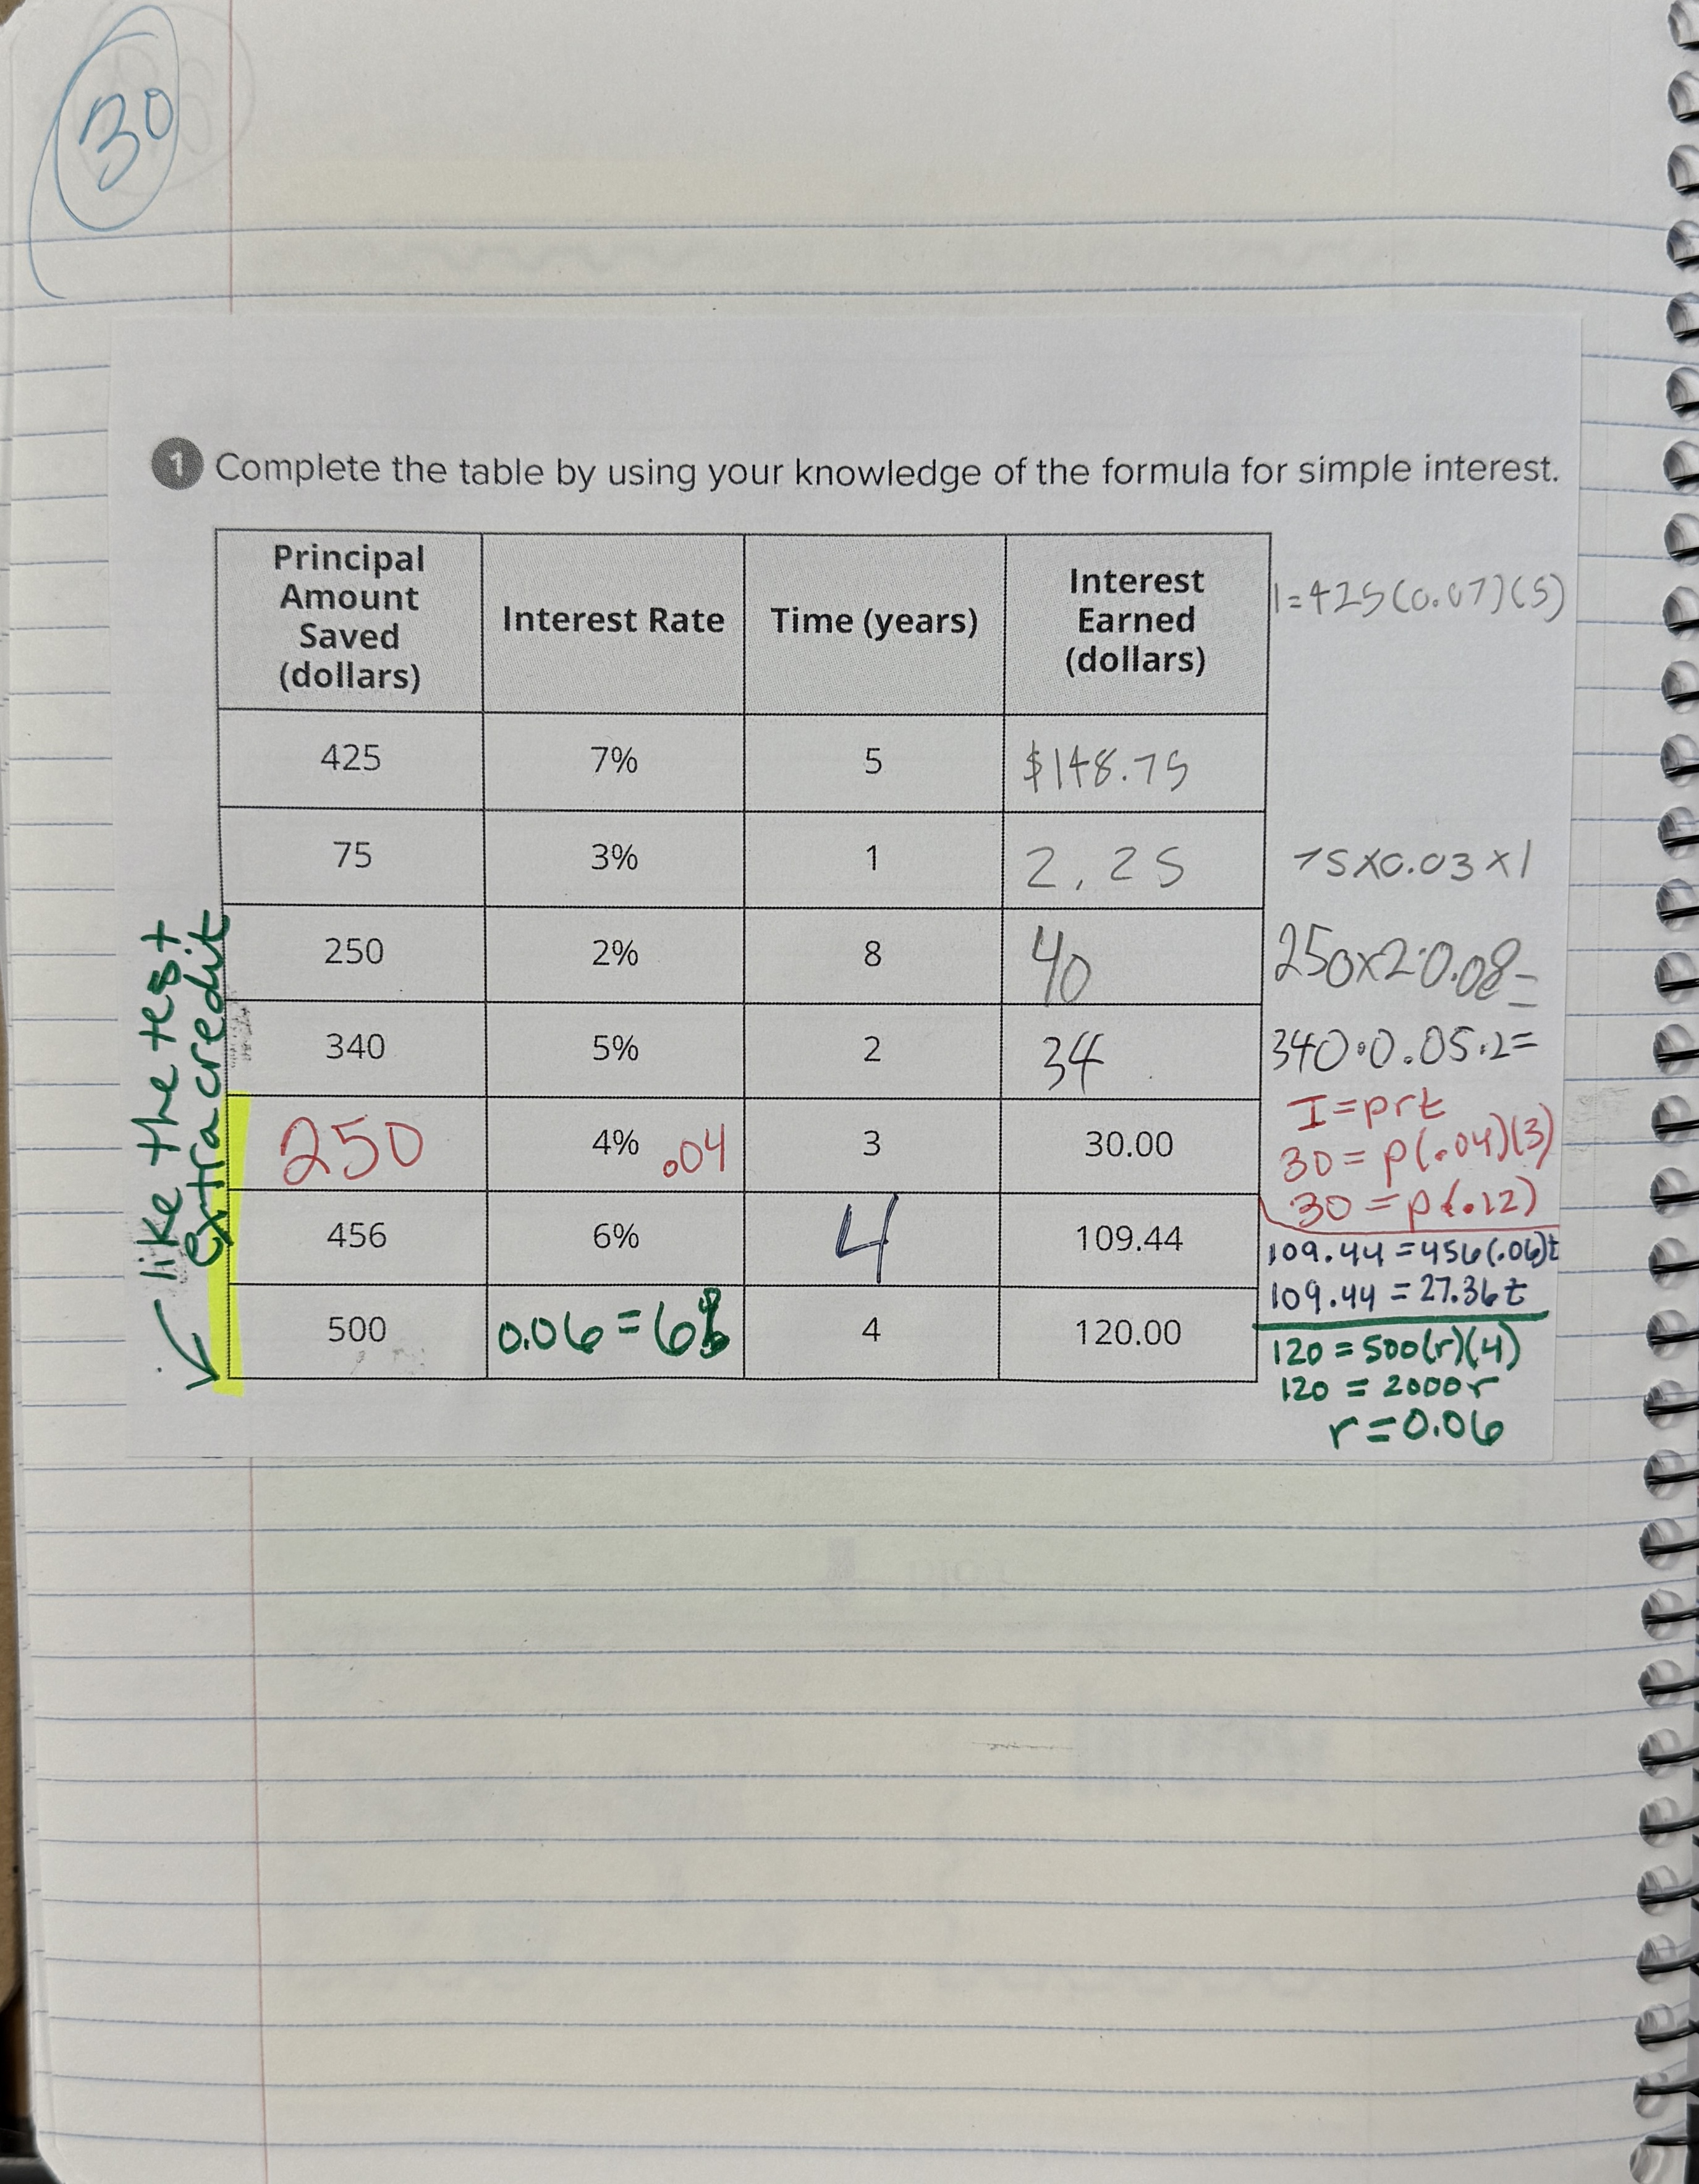 30
1 Complete the table by using your knowledge of the formula for simple interest.
Principal Amount Saved (dollars) Interest Rate Time (years) Interest Earned (dollars)
I=425(0.07)(5)
425 7% 5 $148.75
75 3% 1 2.25 75x0.03x1
250 2% 8 40 250x2·0.08=
340 5% 2 34 340·0.05·2=
I=prt
250 4% .04 3 30.00 30=p(.04)(3)
30=p(.12)
456 6% 4 109.44 109.44=456(.06)t
109.44=27.36t
500 0.06=6% 4 120.00 120=500(r)(4)
120=2000r
r=0.06
like the test
extra credit